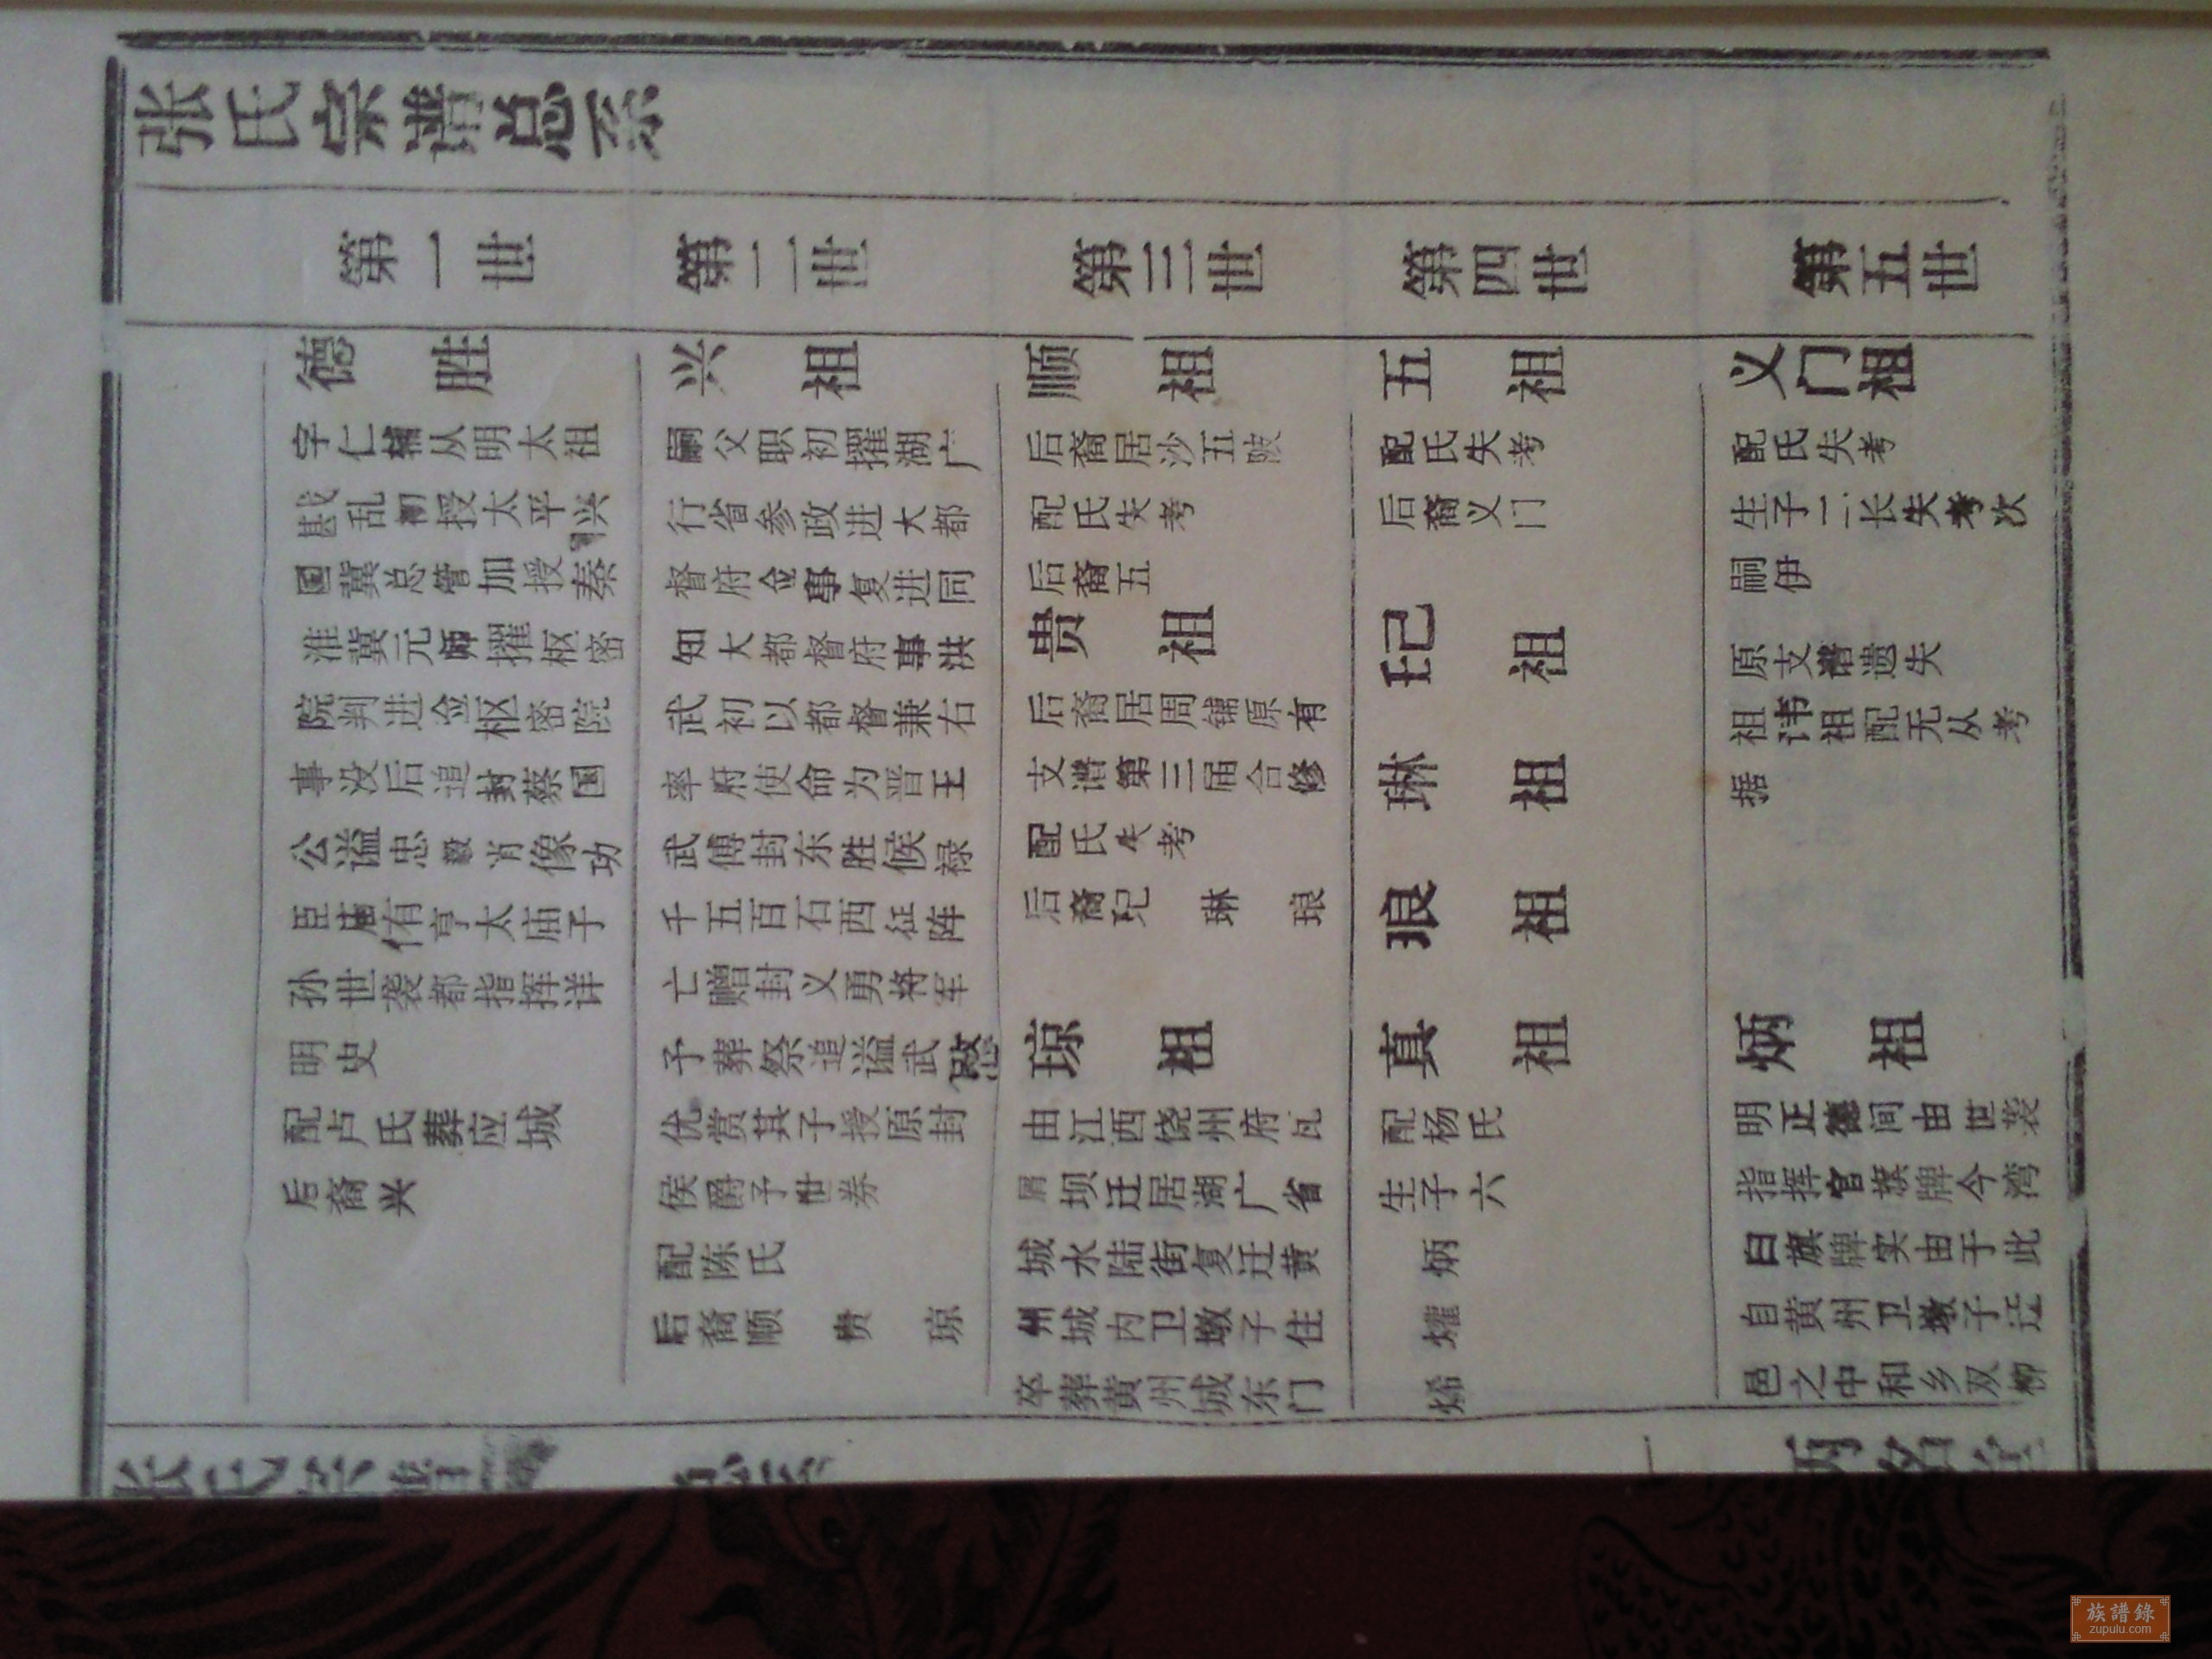 张氏宗谱总系
第一世
德胜
字仁辅从明太祖
戡乱初授太平兴
國冀总管加授秦
淮冀元帅擢枢密
院判进佥枢密院
事没后追封蔡國
公谥忠毅肖像功
臣庙侑亨太庙子
孙世袭都指挥详
明史
配卢氏葬应城
后裔兴
第二世
兴祖
嗣父职初擢湖广
行省参政进大都
督府佥事复进同
知大都督府事洪
武初以都督兼右
率府使命为晋王
武傅封东胜候禄
千五百石西征阵
亡赠封义勇将军
予葬祭追谥武愍
优赏其子授原封
侯爵予世券
配陈氏
后裔顺 贵 琼
第三世
顺祖
后裔居沙五陂
配氏失考
后裔五
贵祖
后裔居周铺原有
支谱第三届合修
配氏失考
后裔玘 琳 琅
琼祖
由江西饶州府瓦
屑坝迁居湖广省
城水陆街复迁黄
州城内卫墩子住
卒葬黄州城东门
第四世
五祖
配氏失考
后裔义门
玘祖
琳祖
琅祖
真祖
配杨氏
生子六
炳
㸌
烯
第五世
义门祖
配氏失考
生子二长失考次
嗣伊
原支谱遗失
祖讳祖配无从考
据
炳祖
明正德间由世袭
指挥官旗牌今湾
曰旗牌实由于此
自黄州卫墩子迁
邑之中和乡双柳
张氏宗谱
族譜錄
zupulu.com